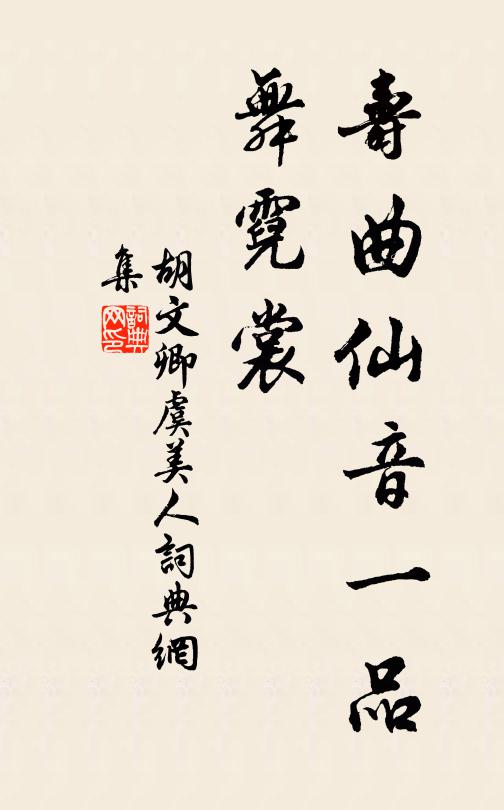 壽曲仙音一品
舞霓裳
胡文卿虞美人詞典網
集
詞典
网印